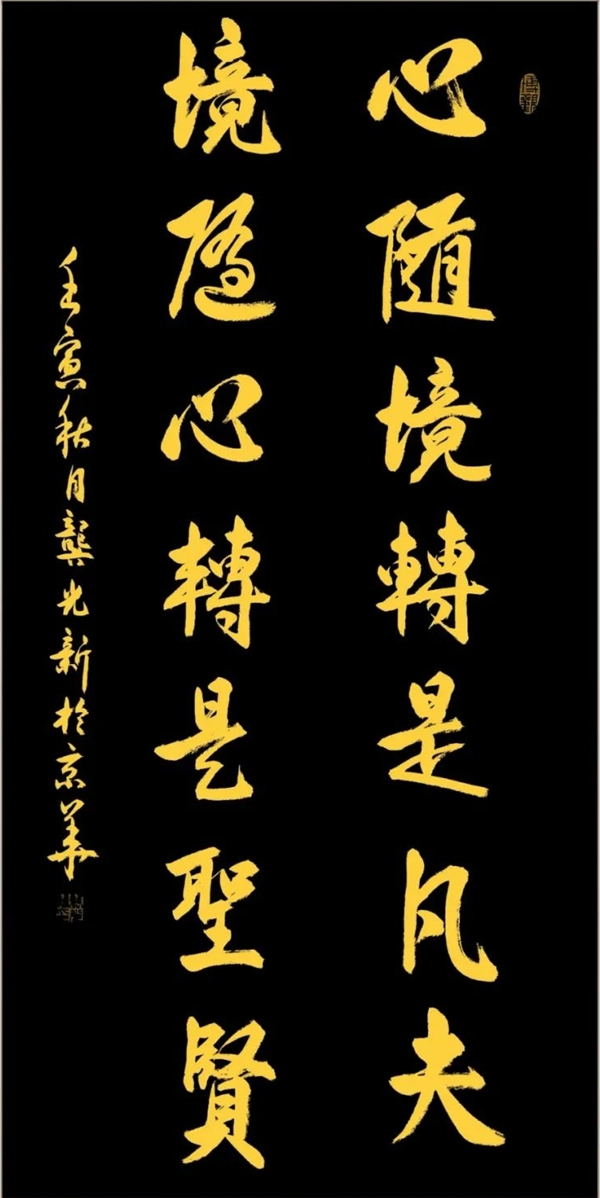 心隨境轉是凡夫
境隨心轉是聖賢
壬寅秋月龔光新於京華